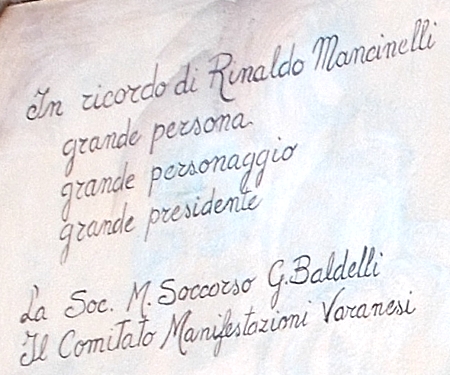 In ricordo di Rinaldo Mancinelli
grande persona
grande personaggio
grande presidente
La Soc. M. Soccorso G. Baldelli
Il Comitato Manifestazioni Varanesi